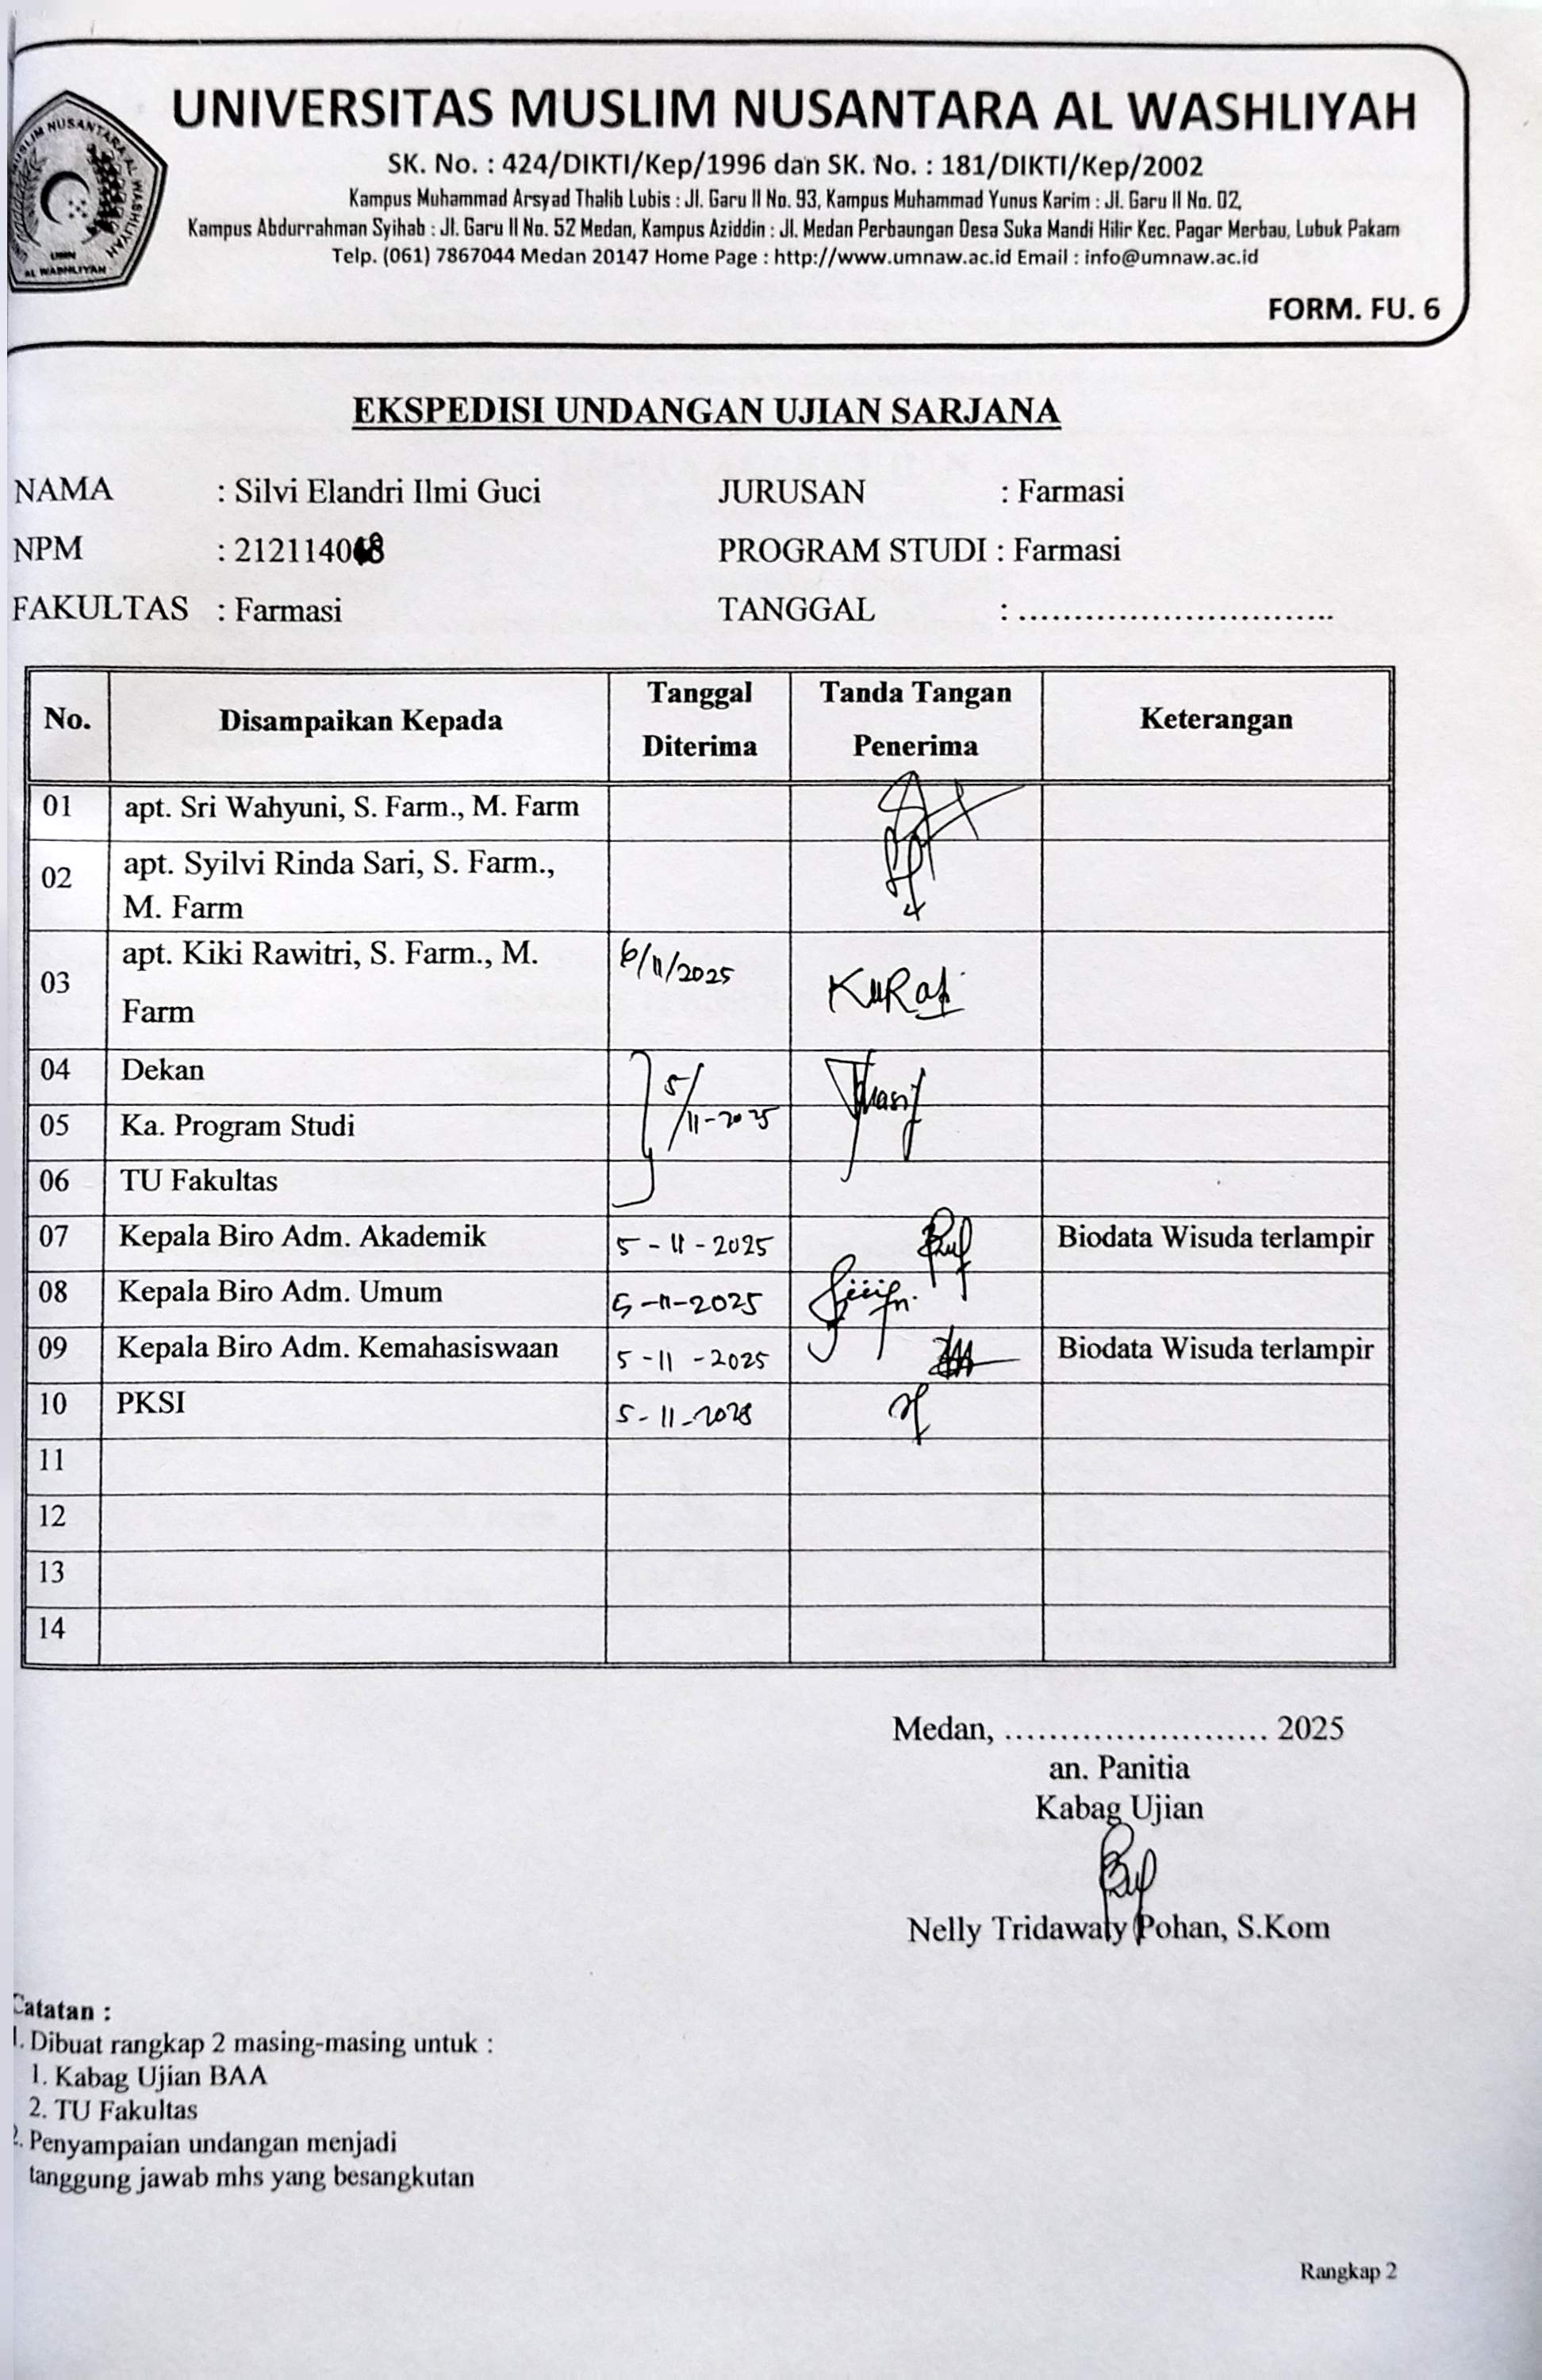 UNIVERSITAS MUSLIM NUSANTARA AL WASHLIYAH
SK. No. : 424/DIKTI/Kep/1996 dan SK. No. : 181/DIKTI/Kep/2002
Kampus Muhammad Arsyad Thalib Lubis : Jl. Garu II No. 93, Kampus Muhammad Yunus Karim : Jl. Garu II No. 02,
Kampus Abdurrahman Syihab : Jl. Garu II No. 52 Medan, Kampus Aziddin : Jl. Medan Perbaungan Desa Suka Mandi Hilir Kec. Pagar Merbau, Lubuk Pakam
Telp. (061) 7867044 Medan 20147 Home Page : http://www.umnaw.ac.id Email : info@umnaw.ac.id
UMN
AL WASHLIYAH
FORM. FU. 6
EKSPEDISI UNDANGAN UJIAN SARJANA
NAMA : Silvi Elandri Ilmi Guci JURUSAN : Farmasi
NPM : PROGRAM STUDI : Farmasi
FAKULTAS : Farmasi TANGGAL : ............................
No. Disampaikan Kepada Tanggal Diterima Tanda Tangan Penerima Keterangan
01 apt. Sri Wahyuni, S. Farm., M. Farm
02 apt. Syilvi Rinda Sari, S. Farm.,
M. Farm
03 apt. Kiki Rawitri, S. Farm., M. 6/11/2025
Farm
04 Dekan
05 Ka. Program Studi 5/11-2025
06 TU Fakultas
07 Kepala Biro Adm. Akademik 5-11-2025 Biodata Wisuda terlampir
08 Kepala Biro Adm. Umum 5-11-2025
09 Kepala Biro Adm. Kemahasiswaan 5-11-2025 Biodata Wisuda terlampir
10 PKSI
11
12
13
14
Medan, ........................ 2025
an. Panitia
Kabag Ujian
Nelly Tridawaty Pohan, S.Kom
Catatan :
1. Dibuat rangkap 2 masing-masing untuk :
1. Kabag Ujian BAA
2. TU Fakultas
2. Penyampaian undangan menjadi
tanggung jawab mhs yang besangkutan
Rangkap 2